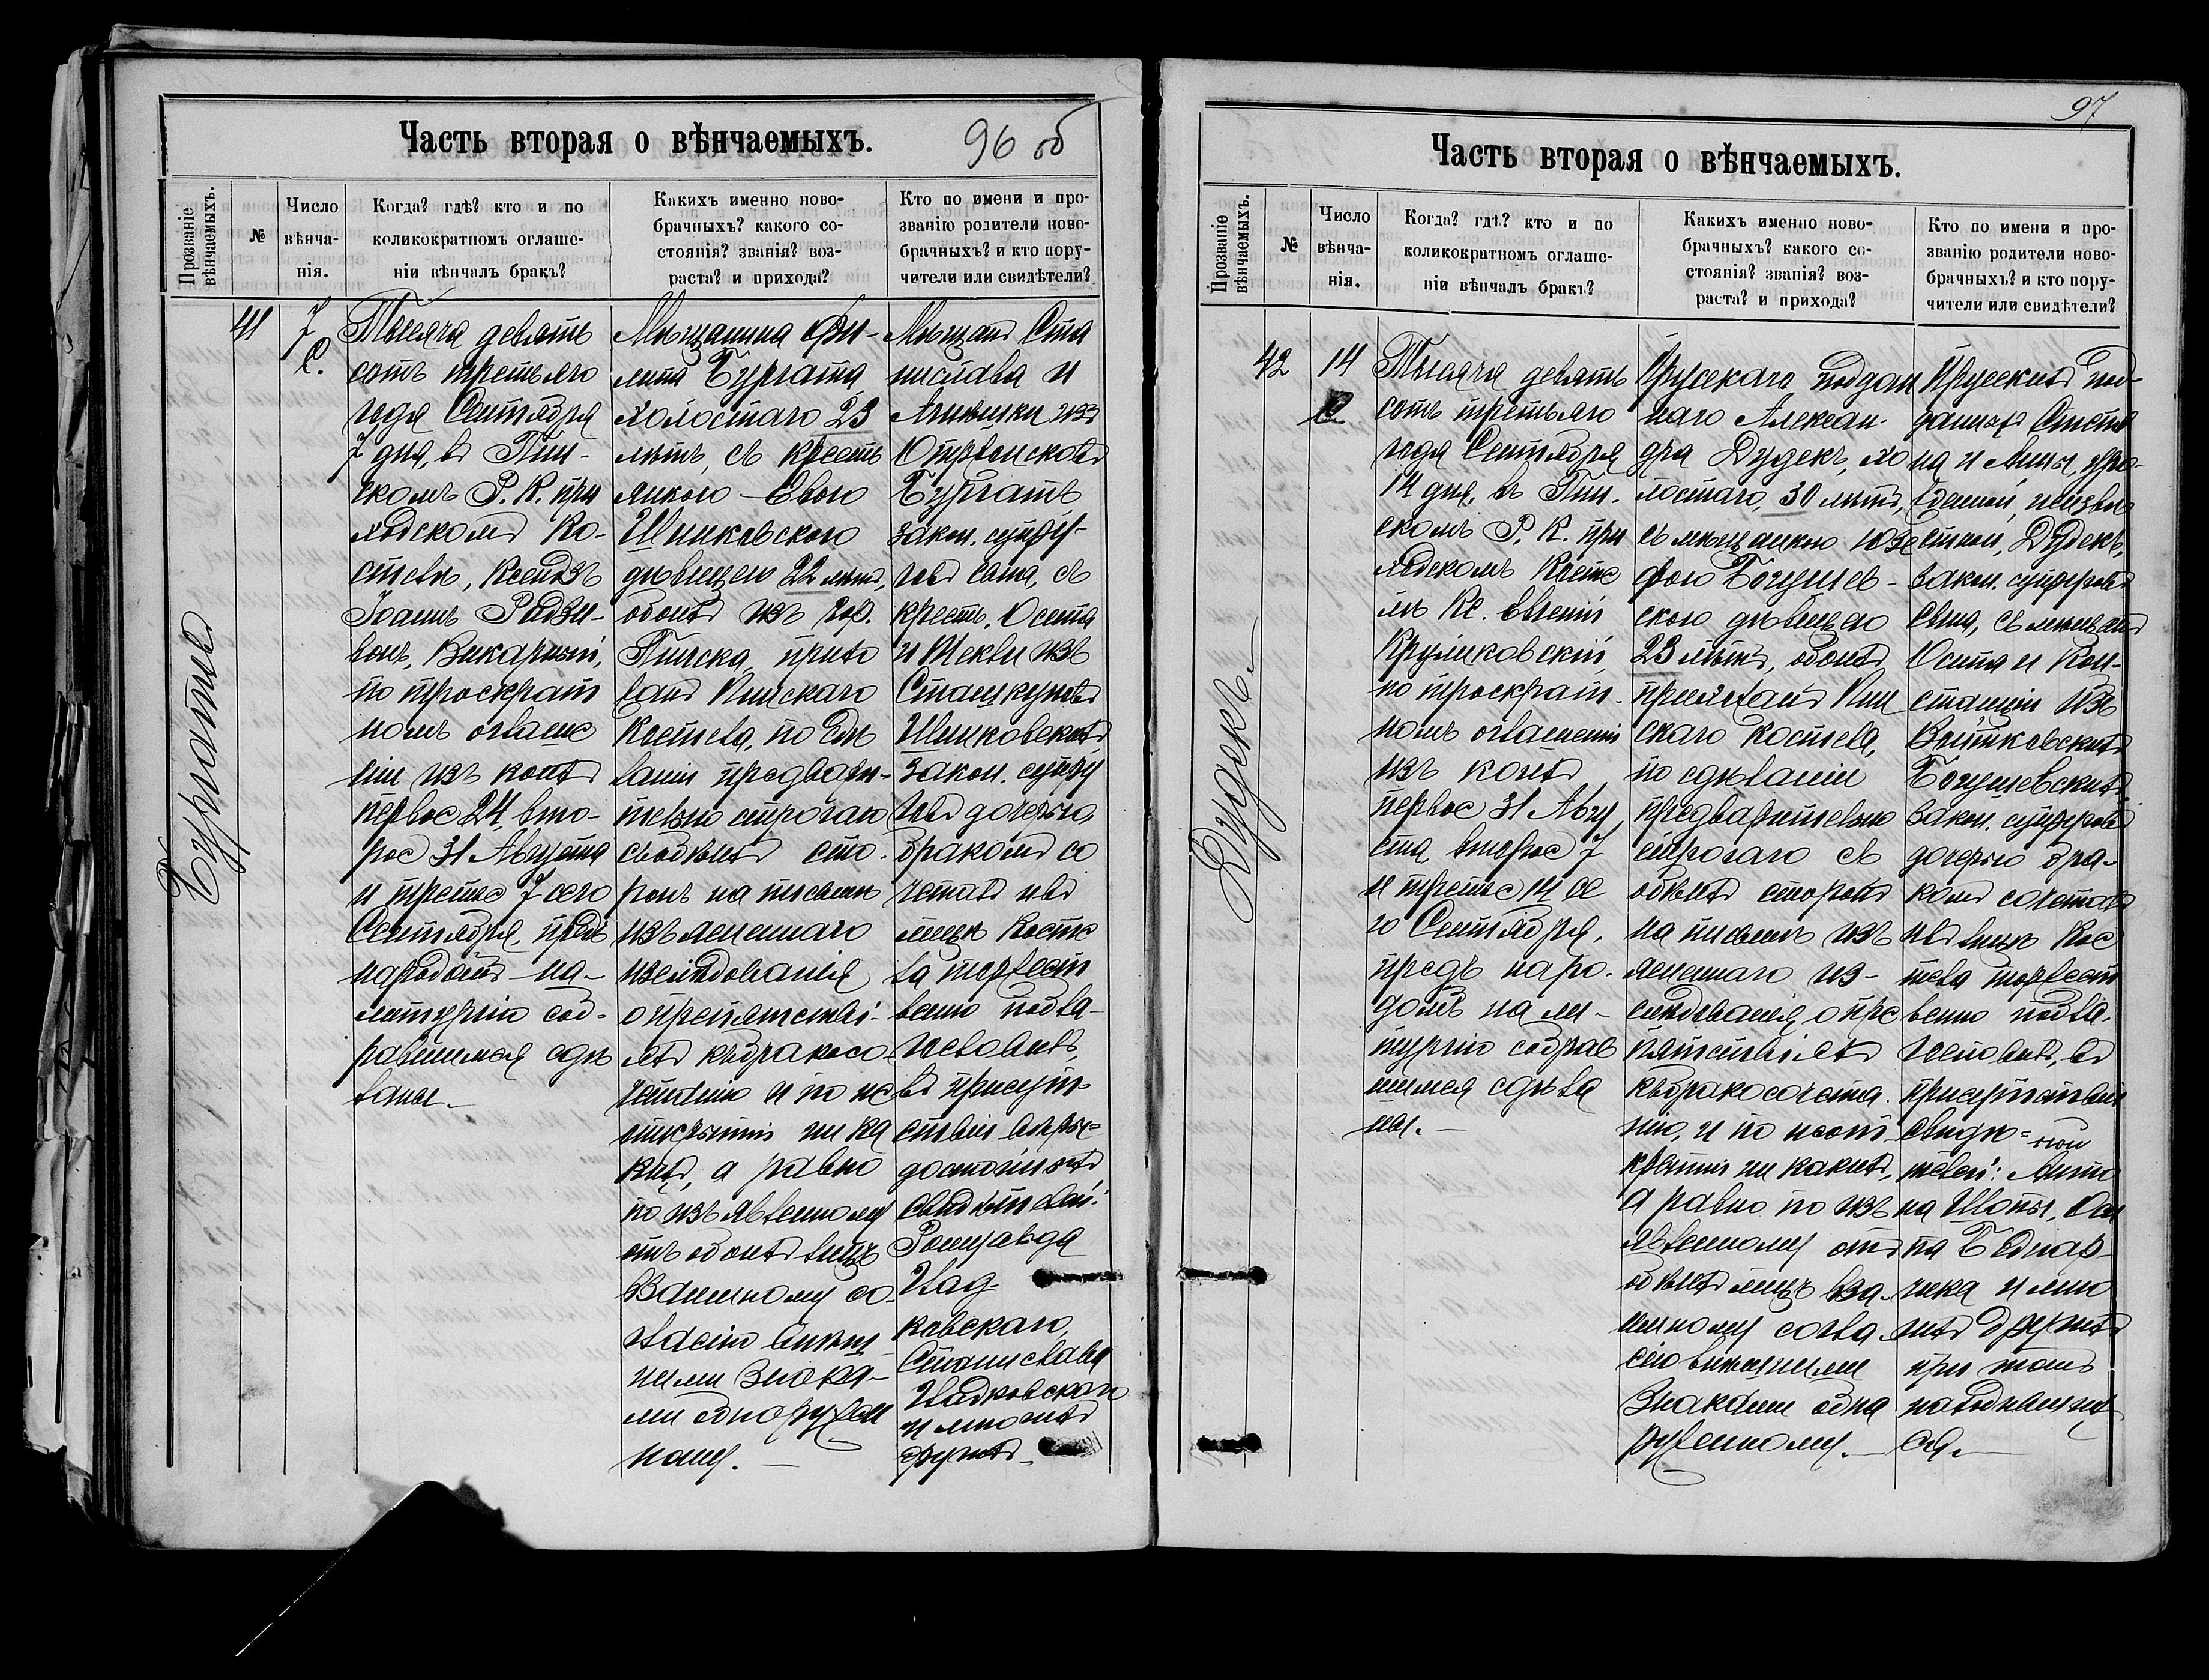 Часть вторая о вѣнчаемыхъ.
96 об
Прозваніе вѣнчаемыхъ.
№
Число вѣнча-
нія.
Когда? гдѣ? кто и по
коликократномъ оглаше-
ніи вѣнчалъ бракъ?
Какихъ именно ново-
брачныхъ? какого со-
стоянія? званія? воз-
раста? и прихода?
Кто по имени и про-
званію родители ново-
брачныхъ? и кто пору-
чители или свидѣтели?
41
7
С.
Тысяча девять
сотъ третьяго
года Сентября
7 дня, въ Пин-
скомъ Р. К. при
ходскомъ Ко-
стелѣ, Ксендзъ
Іоаннъ Радзи-
вонъ, Викарный,
по троекрат
номъ оглаше
ніи изъ коихъ
первое 24, вто-
рое 31 Августа
и третье 7 сего
Сентября, предъ
народомъ на
литургію соб-
равшимся сдѣ
ланы.
Мѣщанина Фи-
липа Бурната
холостаго 23
лѣтъ, съ кресть
янкою Евою
Шпиковскою
дѣвицею 22 лѣтъ,
обоихъ изъ гор.
Пинска, прихо
жанъ Пинскаго
Костела, по сдѣ
ланіи предвари-
тельно строгаго
съ обѣихъ сто-
ронъ на письмѣ
изъясненнаго
изслѣдованія
о препятстві-
яхъ къ бракосо-
четанію и по не
открытіи ни ка
кихъ, а равно
по изъявленному
отъ обоихъ лицъ
взаимному со-
гласію внѣш
ними знака-
ми обнаружен
ному.
Мѣщанъ Ста
нислава и
Агнешки изъ
Бурнатъ
закон. супру-
говъ сына, съ
крест. Осипа
и Теклы изъ
Шпиковскихъ
закон. супру
говъ дочерью,
бракомъ со
четалъ и въ
лицѣ Косте
ла торжест
венно побла-
гословилъ,
въ присут-
ствіи вѣры-
достойныхъ
свидѣтелей:
Ромуальда
Над-
ковскаго,
Станислава
Надковскаго
и многихъ
другихъ
Бурнатъ
97
Часть вторая о вѣнчаемыхъ.
Прозваніе вѣнчаемыхъ.
№
Число вѣнча-
нія.
Когда? гдѣ? кто и по
коликократномъ оглаше-
ніи вѣнчалъ бракъ?
Какихъ именно ново-
брачныхъ? какого со-
стоянія? званія? воз-
раста? и прихода?
Кто по имени и про-
званію родители ново-
брачныхъ? и кто пору-
чители или свидѣтели?
42
14
С.
Тысяча девять
сотъ третьяго
года Сентября
14 дня, въ Пин-
скомъ Р. К. при
ходскомъ Косте
лѣ Кс. Евгеній
Круликовскій
по троекрат-
номъ оглашеніи
изъ коихъ
первое 31 Авгу
ста, второе 7
и третье 14 се
го Сентября,
предъ наро-
домъ на ли-
тургію собрав
шимся сдѣла
ны.
Прусскаго поддан
наго Алексан-
дра Дудекъ, хо
лостаго, 30 лѣтъ,
съ мѣщанкою Юзе
фою Богушев-
скою дѣвицею
23 лѣтъ, обоихъ
прихожанъ Пин
скаго Костела,
по сдѣланіи
предварительно
строгаго съ
обѣихъ сторонъ
на письмѣ изъ
ясненнаго из-
слѣдованія о пре
пятствіяхъ
къ бракосочета-
нію, и по неот
крытіи ни какихъ,
а равно по изъ
явленному отъ
обѣихъ лицъ вза-
имному согла-
сію внѣшними
знаками обна
руженному.
Прусскихъ под-
данныхъ
на и Анны, уро-
жденной, неизвѣ
стной, Дудекъ,
закон. супруговъ
сына, съ мѣщанъ
Осипа и Кон-
станціи изъ
Войтковскихъ
Богушевскихъ,
закон. супруговъ
дочерью бра-
комъ сочеталъ
и въ лицѣ Кос
тела торжест
венно побла-
гословилъ, въ
присутствіи
свидѣ-
телей: Анто
на Шопы, Оси
па Беднар-
чика и мно
гихъ другихъ
при томъ
находившихъ
ся.
Дудекъ